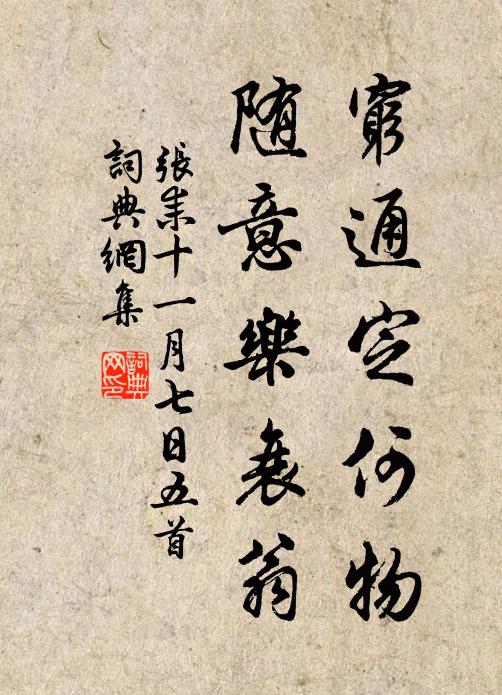 窮通定何物
随意樂衰翁
張耒十一月七日五首
詞典網集
詞典網印